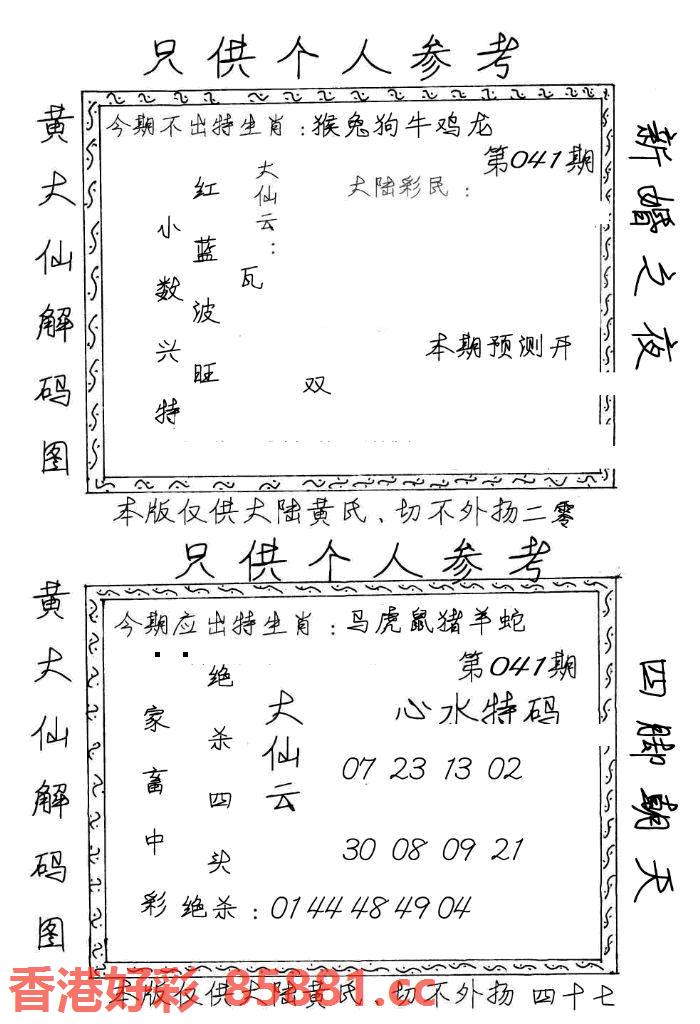 只供个人参考
黄大仙解码图
今期不出特生肖：猴兔狗牛鸡龙
第041期
大陆彩民：
大仙云：
瓦
红蓝波旺
小数兴特
双
本期预测开
新婚之夜
本版仅供大陆黄氏、切不外扬二零
只供个人参考
黄大仙解码图
今期应出特生肖：马虎鼠猪羊蛇
第041期
心水特码
大仙云
绝杀四头
家畜中彩
07 23 13 02
30 08 09 21
绝杀：01 44 48 49 04
四脚朝天
本版仅供大陆黄氏、切不外扬 四十七
香港好彩 85881.cc